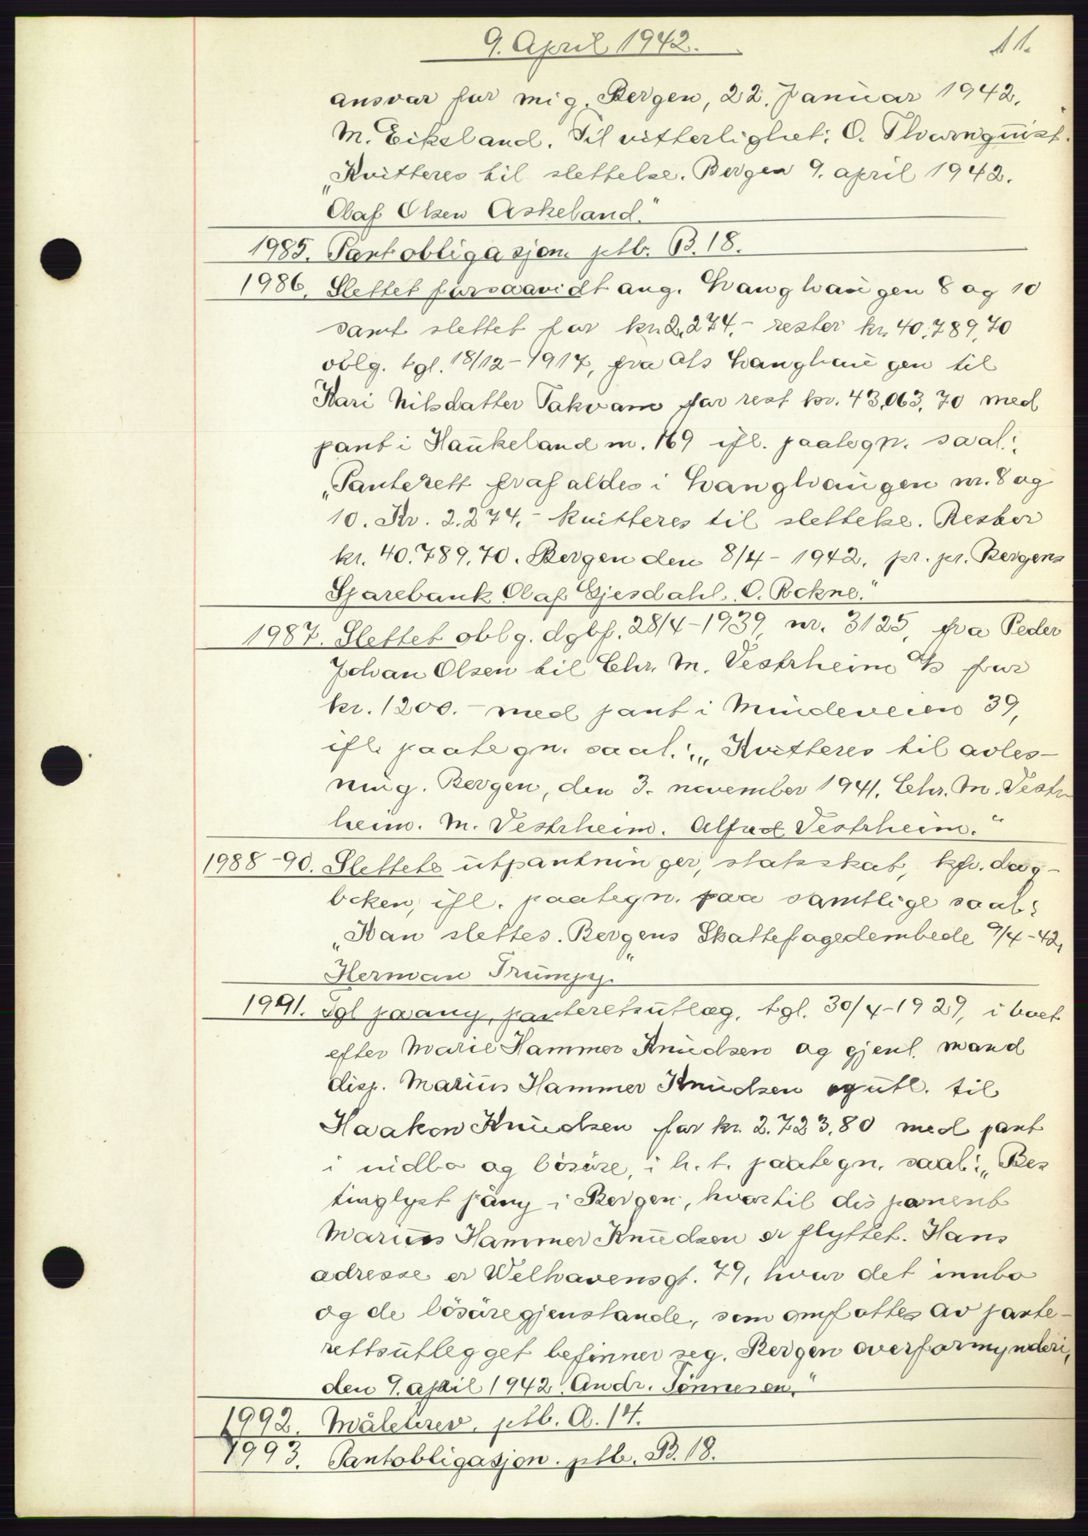 9. April 1942.
11.
ansvar for mig. Bergen, 22. Januar 1942.
M. Eiksland. Til vitterlighet: O. Thurnquist.
„Kvitteres til slettelse. Bergen 9. april 1942.
Olaf Olsen Askeland."
1985. Pantobligasjon ptb. B. 18.
1986. Slettet forsaavidt ang. Langhaugen 8 og 10
samt slettet for kr. 2.274.- rester kr. 40.789,70
oblg. tgl. 18/12-1917, fra A/s Langhaugen til
Kari Nilsdatter Takvam for rest kr. 43.063,70 med
pant i Haukeland m. 169 ifl. paategn. saal.:
„Panterett frafaldes i Langhaugen nr. 8 og
10. Kr. 2.274.- kvitteres til slettelse. Rester
kr. 40.789.70. Bergen den 8/4-1942. pr. pr. Bergens
Sparebank Olaf Gjesdahl. O. Rokne."
1987. Slettet oblg. dgbf. 28/4-1939, nr. 3125, fra Peder
Johan Olsen til Chr. M. Vestrheim A/s for
kr. 1200.- med pant i Mindeveien 39,
ifl. paategn. saal.: „Kvitteres til avles-
ning. Bergen, den 3. november 1941. Chr. M. Vestr-
heim. M. Vestrheim. Alfred Vestrheim."
1988-90. Slettete utpantninger, statsskat, kfr. dag-
boken, ifl. paategn. paa samtlige saal.:
„Kan slettes. Bergens Skattefogedembede 9/4-42,
Herman Trumpy."
1991. Tgl paany, panteretsutlæg, tgl. 30/4-1929, i boet
efter Marie Hammer Knudsen og gjenl. mand
disp. Marius Hammer Knudsen og utl. til
Haakon Knudsen for kr. 2.723,80 med pant
i indbo og lösöre, i h. t. paategn. saal.: „Bes
tinglyst påny i Bergen, hvortil disponent
Marius Hammer Knudsen er flyttet. Hans
adresse er Welhavensgt. 79, hvor det innbo
og de lösöregjenstande, som omfattes av pante-
rettsutlegget befinner seg. Bergen overformynderi,
den 9. april 1942. Andr. Tönnesen."
1992. Målebrev. ptb. A. 14.
1993. Pantobligasjon. ptb. B. 18.